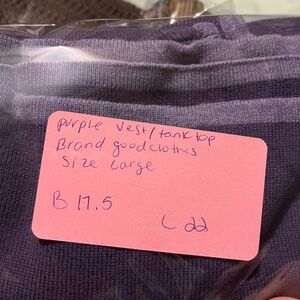 purple vest/tank top
Brand goodclothes
Size Large
B 17.5
L 22